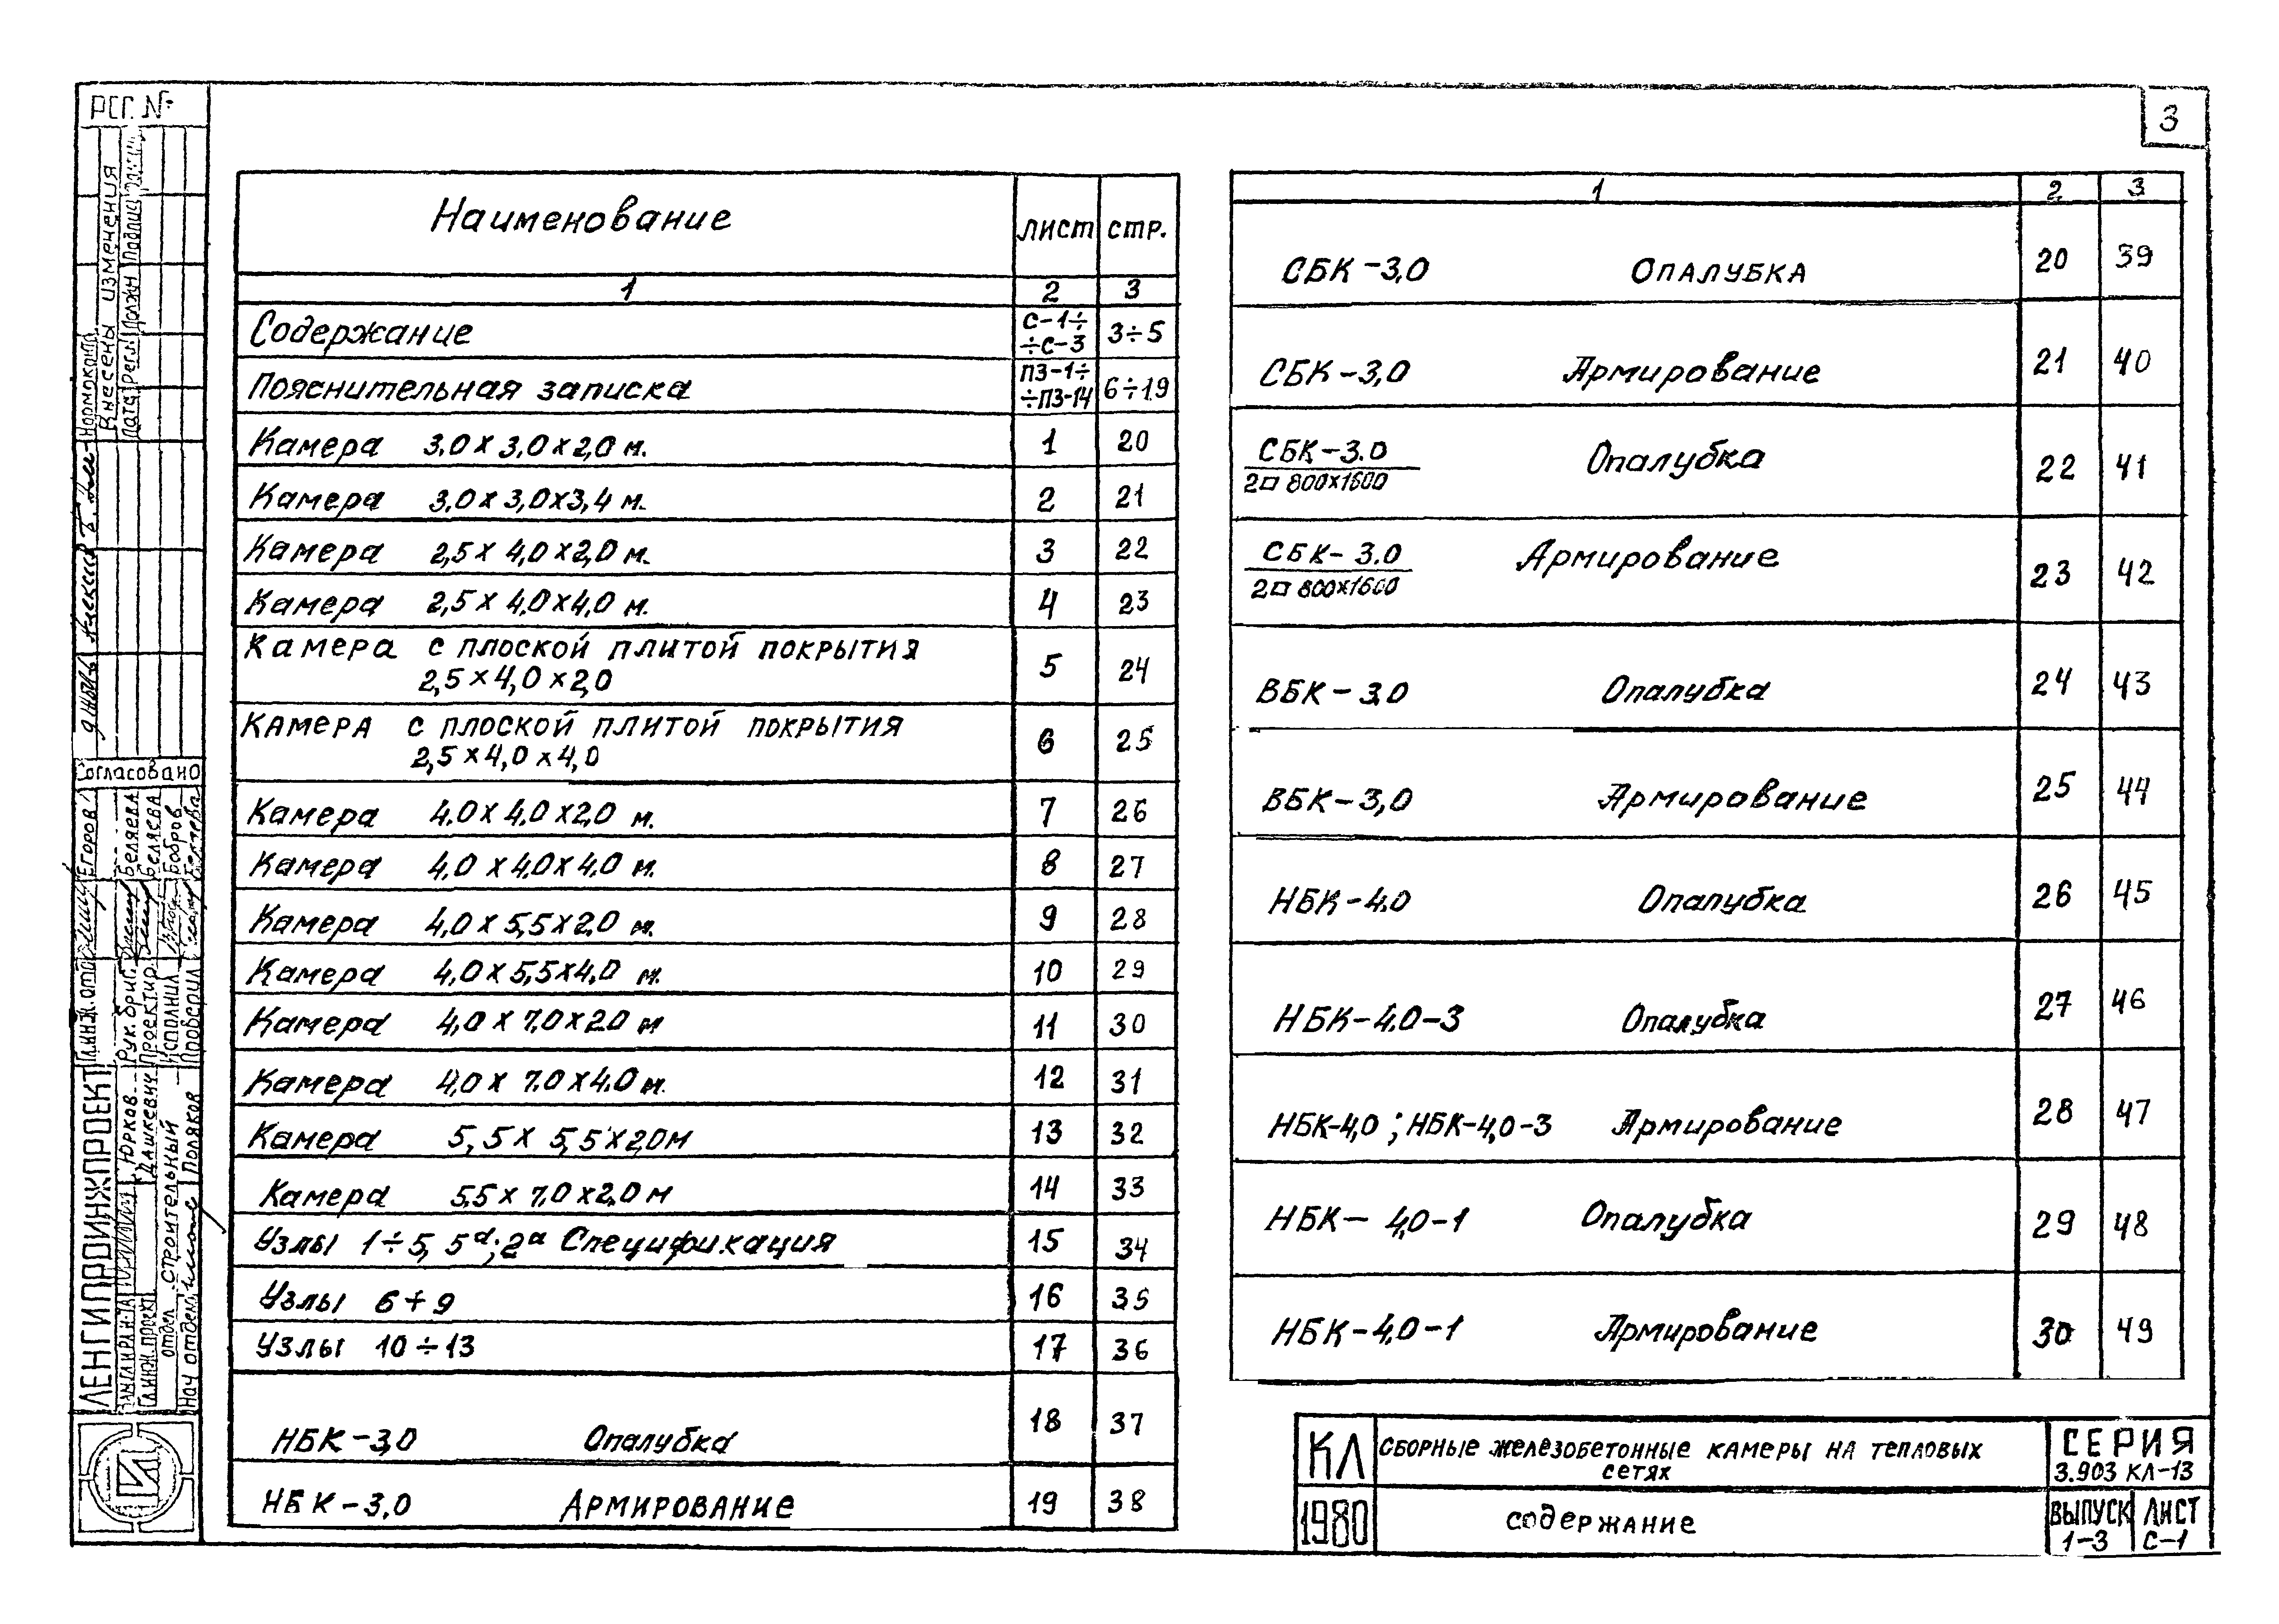 3
Наименование лист стр.
1 2 3
Содержание С-1÷ ÷С-3 3÷5
Пояснительная записка ПЗ-1÷ ÷ПЗ-14 6÷19
Камера 3,0х3,0х2,0 м. 1 20
Камера 3,0х3,0х3,4 м. 2 21
Камера 2,5х4,0х2,0 м. 3 22
Камера 2,5х4,0х4,0 м. 4 23
Камера с плоской плитой покрытия
2,5х4,0х2,0 5 24
Камера с плоской плитой покрытия
2,5х4,0х4,0 6 25
Камера 4,0х4,0х2,0 м. 7 26
Камера 4,0х4,0х4,0 м. 8 27
Камера 4,0х5,5х2,0 м. 9 28
Камера 4,0х5,5х4,0 м. 10 29
Камера 4,0х7,0х2,0 м 11 30
Камера 4,0х7,0х4,0 м. 12 31
Камера 5,5х5,5х2,0м 13 32
Камера 5,5х7,0х2,0 м 14 33
Узлы 1÷5, 5а; 2а Спецификация 15 34
Узлы 6÷9 16 35
Узлы 10÷13 17 36
НБК-3,0 Опалубка 18 37
НБК-3,0 Армирование 19 38
1 2 3
СБК-3,0 Опалубка 20 39
СБК-3,0 Армирование 21 40
СБК-3.0 Опалубка 22 41
2□ 800х1600
СБК-3.0 Армирование 23 42
2□ 800х1600
ВБК-3,0 Опалубка 24 43
ВБК-3,0 Армирование 25 44
НБК-4.0 Опалубка 26 45
НБК-4,0-3 Опалубка 27 46
НБК-4,0; НБК-4,0-3 Армирование 28 47
НБК-4,0-1 Опалубка 29 48
НБК-4,0-1 Армирование 30 49
КЛ
1980
Сборные железобетонные камеры на тепловых
сетях
содержание
СЕРИЯ
3.903 КЛ-13
ВЫПУСК ЛИСТ
1-3 С-1
РЕГ. №
Внесены изменения
Дата Рег.№ Должн Подпис
Согласовано
Егоров
Беляева
Беляева
Бобров
Рук. бриг.
Проектир.
Исполнил
Проверил
ЛЕНГИПРОИНЖПРОЕКТ
Юрков
Дашкевич
отдел строительный
Нач отдел Поляков